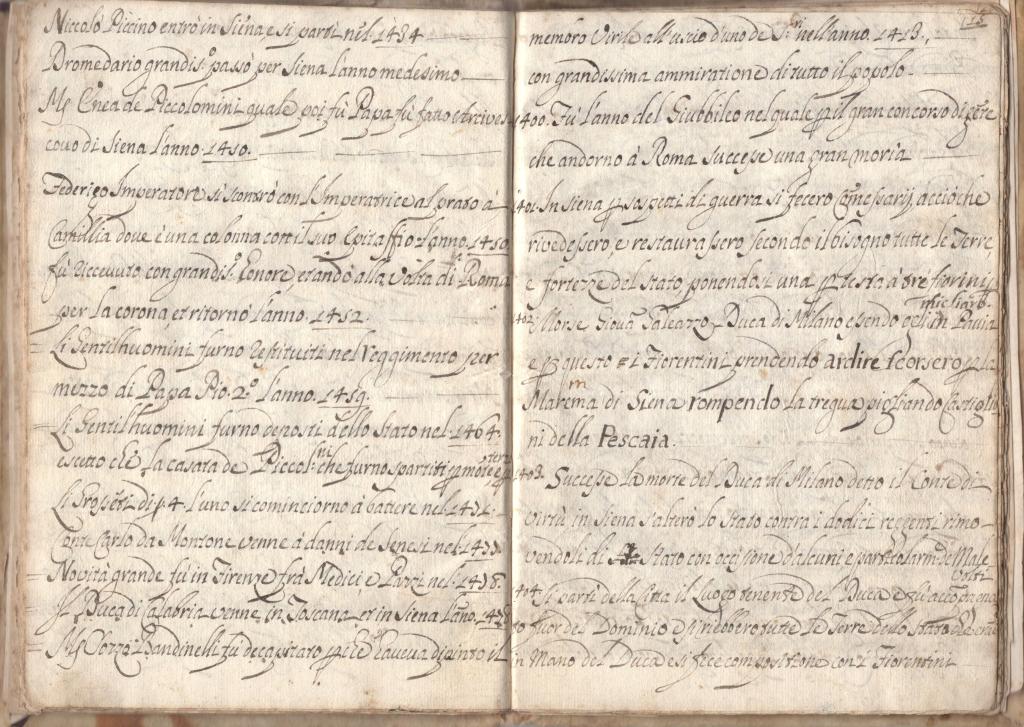 Niccolò Piccino entrò in Siena e si partì nel 1434
Dromedario grandis.º passò per Siena l'anno medesimo
Mʳ Enea de Piccolomini quale poi fù Papa fù fatto Arcives
covo di Siena l'anno 1450.
Federigo Imperatore si scontrò con l'Imperatrice al prato à
Camillia dove è una colonna con il suo Epitaffio l'anno 1450
fù ricevuto con grandis.º honore, et andò alla volta di Roma
per la corona et ritornò l'anno 1452.
Li Gentilhuomini furno restituiti nel reggimento per
mezzo di Papa Pio 2.º l'anno 1459.
Li Gentilhuomini furno deposti dello stato nel 1464
eccetto che la casata de Piccol.ni che furno spartiti
Li Grossetti di 4 l'uno si cominciorno à battere nel
Conte Carlo da Montone venne à danni de Senesi nel
Novità grande fù in Firenze frà Medici e Pazzi nel 1478.
Il Duca di Calabria venne in Toscana et in Siena l'ano.
Bandinelli fù decapitato che haveva dipinto il
15
membro Virile all'uscio d'uno de S.ri nell'anno 1413.,
con grandissima ammiratione di tutto il popolo
1400. Fù l'anno del Giubbileo nel quale p il gran concorso di gete
che andorno à Roma successe una gran morìa
1401. In Siena p sospetti di guerra si fecero Comessarij, acciò che
rivedessero, e restaurassero secondo il bisogno tutte le Terre,
e fortezze del stato, ponendosi una p testa à tre fiorini
1402. Morse Giovā Galeazzo Duca di Milano essendo egli in Pavia
e p questo i Fiorentini prendendo ardire scorsero p la
Marema di Siena rompendo la tregua pigliando Castiglio
ni della Pescaia.
1403. Successe la morte del Duca di Milano detto il Conte di
virtù in Siena s'alterò lo stato contra i dodici reggenti rimo-
vendoli di stato con occisione d'alcuni e particolarm.
404 Si partì della Città il Luogotenente del Duca e fù accompagna
to fuor del Dominio si riebbero tutte le Terre dello stato
in Mano del Duca e si fece compositione con i Fiorentini